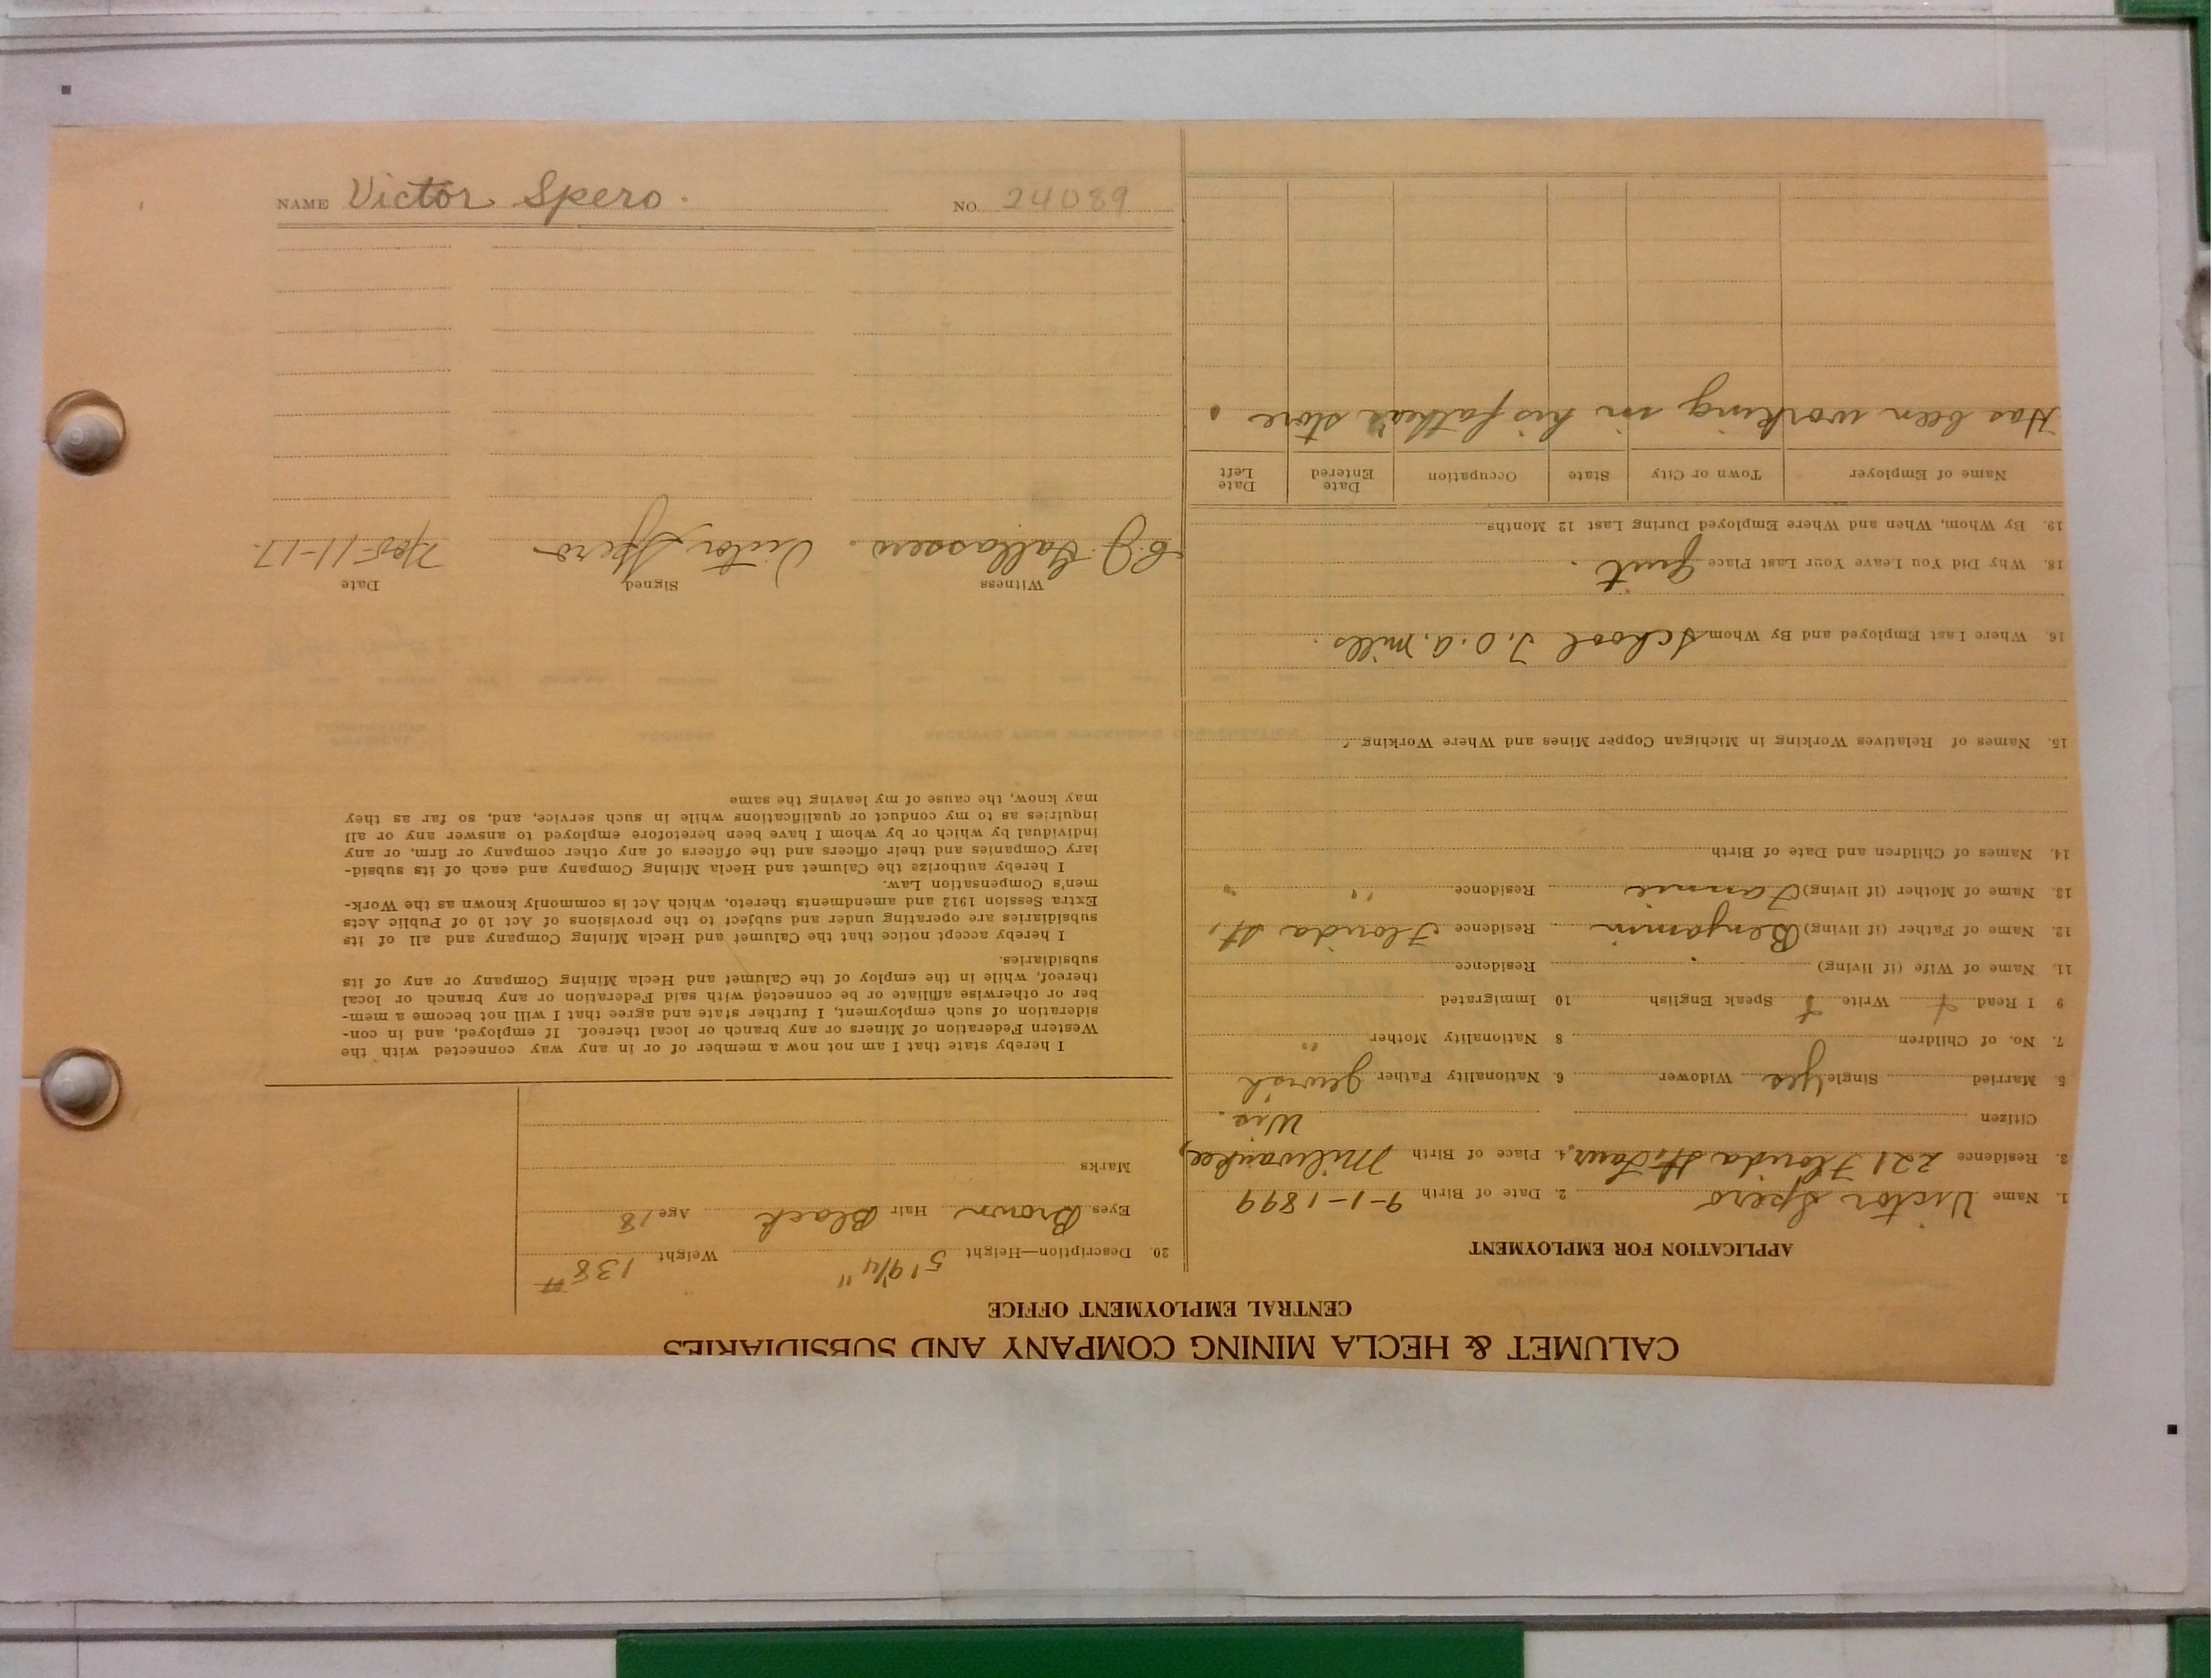 CALUMET & HECLA MINING COMPANY AND SUBSIDIARIES
CENTRAL EMPLOYMENT OFFICE
APPLICATION FOR EMPLOYMENT
1. Name Victor Spero 2. Date of Birth 9-1-1899
3. Residence 221 Florida St. Laur. 4. Place of Birth Milwaukee,
Citizen Wis.
5. Married Single yes Widower 6. Nationality Father Jewish
7. No. of Children 8 Nationality Mother "
9 I Read Write Speak English 10 Immigrated
11. Name of Wife (if living) Residence
12. Name of Father (if living) Benjamin Residence Florida St,
13. Name of Mother (if living) Fannie Residence " "
14. Names of Children and Date of Birth
15. Names of Relatives Working in Michigan Copper Mines and Where Working
16. Where Last Employed and By Whom School mills.
18. Why Did You Leave Your Last Place Quit.
19. By Whom, When and Where Employed During Last 12 Months
Name of Employer Town or City State Occupation Date Entered Date Left
Has been working in his father's store.
20. Description—Height 5' 9 1/4" Weight 138#
Eyes Brown Hair Black Age 18
Marks
I hereby state that I am not now a member of or in any way connected with the
Western Federation of Miners or any branch or local thereof. If employed, and in con-
sideration of such employment, I further state and agree that I will not become a mem-
ber or otherwise affiliate or be connected with said Federation or any branch or local
thereof, while in the employ of the Calumet and Hecla Mining Company or any of its
subsidiaries.
I hereby accept notice that the Calumet and Hecla Mining Company and all of its
subsidiaries are operating under and subject to the provisions of Act 10 of Public Acts
Extra Session 1912 and amendments thereto, which Act is commonly known as the Work-
men's Compensation Law.
I hereby authorize the Calumet and Hecla Mining Company and each of its subsid-
iary Companies and their officers and the officers of any other company or firm, or any
individual by which or by whom I have been heretofore employed to answer any or all
inquiries as to my conduct or qualifications while in such service, and, so far as they
may know, the cause of my leaving the same
Witness Signed Date
Victor Spero 11-17.
NAME Victor Spero. NO. 24089